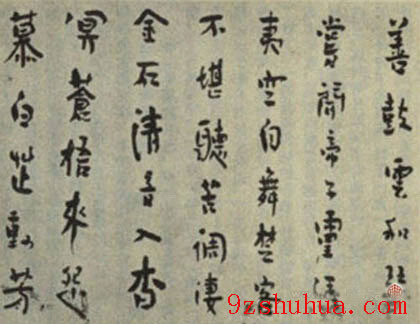 善鼓雲和瑟
嘗聞帝子靈馮
夷空自舞楚客
不堪聽苦調淒
金石清音入杳
冥蒼梧來怨
慕白芷動芳
9zshuhua.com